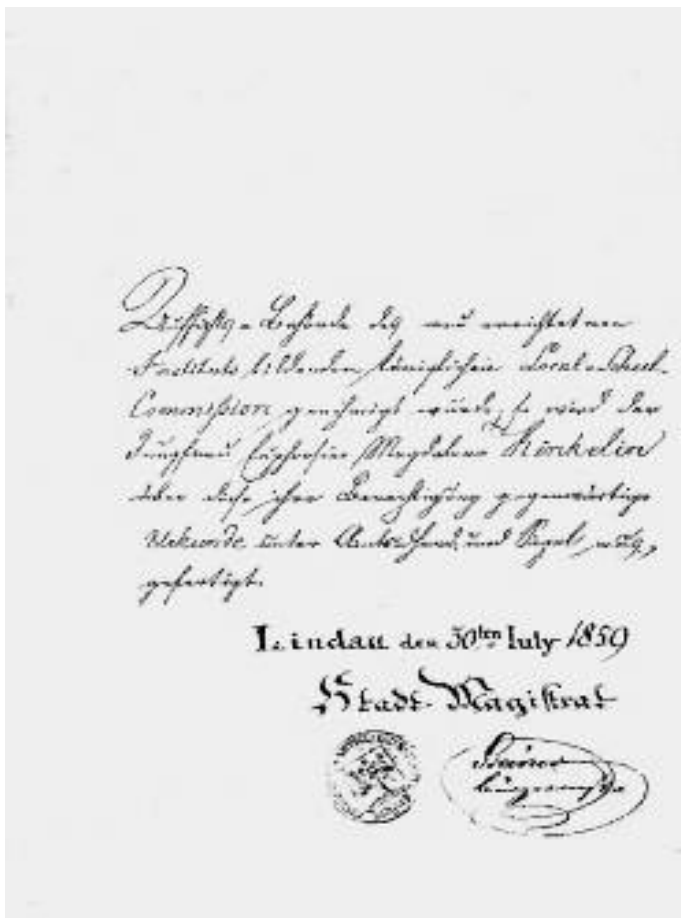 Aufsichts-Behörde des neu errichteten
Instituts bildenden königlichen Local-Schul-
Commission genehmigt wurde, so wird der
Jungfrau Euphrosine Magdalena Kinkelin
über diese ihre Berechtigung gegenwärtige
Urkunde unter Amts Hand und Siegel
gefertigt.
Lindau den 30ten July 1859
Stadt-Magistrat